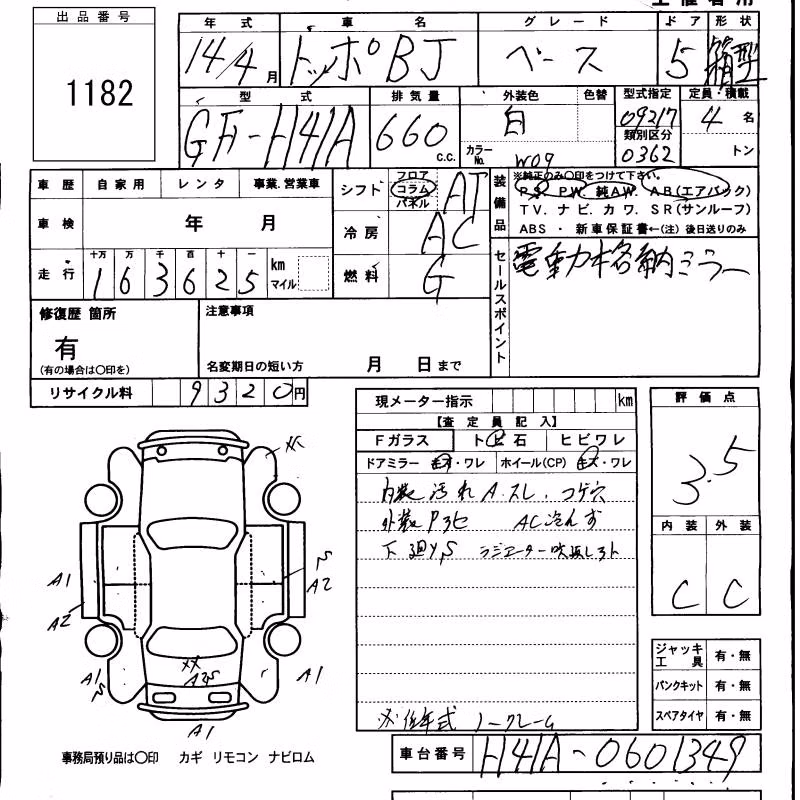 出品番号
1182
年式 車名 グレード ドア 形状
14/4月 トッポBJ ベース 5 箱型
型式 排気量 外装色 色替 型式指定 定員・積載
GF-H41A 660 c.c. 白 09217 4名
カラーNo. W09 類別区分 0362 トン
車歴 自家用 レンタ 事業.営業車
シフト フロア コラム パネル AT
装備品 ※純正のみ○印をつけて下さい。
PS PW 純AW. AB(エアバック)
TV. ナビ. カワ. SR(サンルーフ)
ABS ・ 新車保証書←(注) 後日送りのみ
車検 年 月
冷房 AC
走行 十万 万 千 百 十 一
163625 km マイル
燃料 G
セールスポイント 電動格納ミラー
修復歴 箇所
有
(有の場合は○印を)
注意事項
名変期日の短い方 月 日まで
リサイクル料 9320円
現メーター指示 km
【査定員記入】
Fガラス ト 石 ヒビワレ
ドアミラー キズ・ワレ ホイール(CP) キズ・ワレ
内装 汚れ A.スレ. コゲ穴
外装 AC冷えず
下廻りS
※低年式 ノークレーム
評価点
3.5
内装 外装
C C
ジャッキ工具 有・無
パンクキット 有・無
スペアタイヤ 有・無
XX
A1
S
A2
A2
XX
A1
S
A1
A1
事務局預り品は○印 カギ リモコン ナビロム
車台番号 H41A-0601349